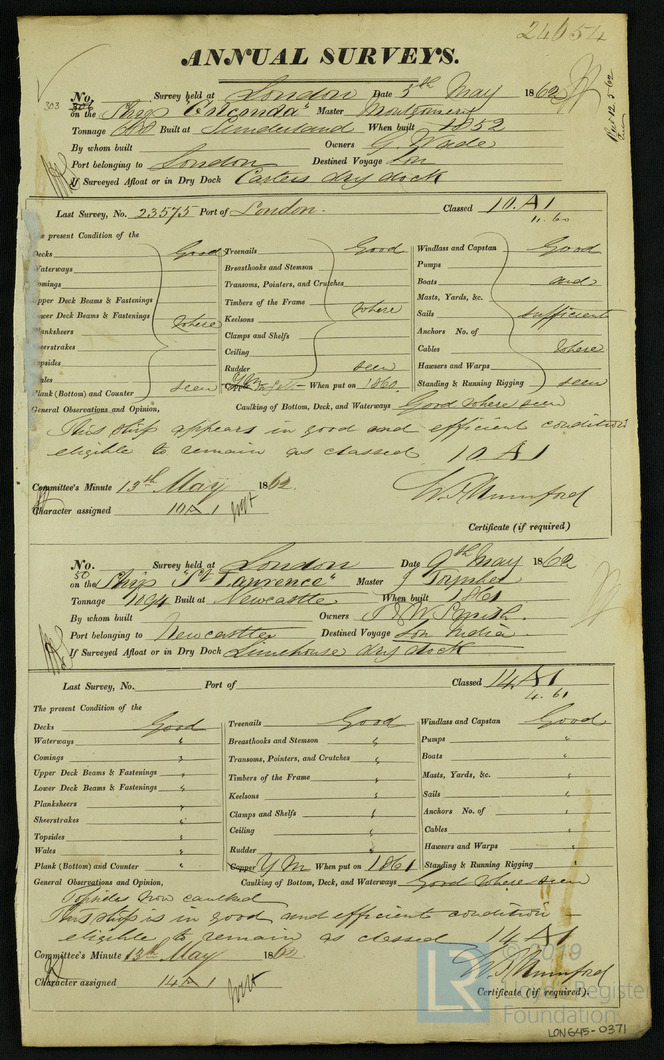 24054
ANNUAL SURVEYS.
No. Survey held at London Date 5th May 1862
303
on the Ship "Orconda" Master Montgomery
Tonnage Built at Sunderland When built 1852
By whom built Owners G. Wade
Port belonging to London Destined Voyage Lon
If Surveyed Afloat or in Dry Dock Casters dry dock
Last Survey, No. 23575 Port of London. Classed 10 A1
11.60
The present Condition of the
Decks Good Treenails Good Windlass and Capstan Good
Waterways Breasthooks and Stemson Pumps
Comings Transoms, Pointers, and Crutches Boats and
Upper Deck Beams & Fastenings Timbers of the Frame where Masts, Yards, &c.
Lower Deck Beams & Fastenings Keelsons Sails sufficient
Planksheers where Clamps and Shelfs Anchors No. of
Sheerstrakes Ceiling Cables where
Topsides Rudder seen Hawsers and Warps
Wales When put on 1860. Standing & Running Rigging seen
Plank (Bottom) and Counter seen
General Observations and Opinion, Caulking of Bottom, Deck, and Waterways Good where seen
This ship appears in good and efficient condition
eligible to remain as classed 10 A1
Committee's Minute 13th May 1862 W. Mumford
Character assigned 10 A 1
Certificate (if required)
No. Survey held at London Date 9th May 1862
50
on the Ship "St Lawrence" Master J Toynbee
Tonnage 1094 Built at Newcastle When built 1861
By whom built Owners T & W Smith.
Port belonging to Newcastle Destined Voyage Lon India
If Surveyed Afloat or in Dry Dock Limehouse dry dock
Last Survey, No. Port of Classed 14 A1
4.61
The present Condition of the
Decks Good Treenails Good Windlass and Capstan Good
Waterways " Breasthooks and Stemson " Pumps "
Comings " Transoms, Pointers, and Crutches " Boats "
Upper Deck Beams & Fastenings " Timbers of the Frame " Masts, Yards, &c. "
Lower Deck Beams & Fastenings " Keelsons " Sails "
Planksheers " Clamps and Shelfs " Anchors No. of "
Sheerstrakes " Ceiling " Cables "
Topsides " Rudder " Hawsers and Warps "
Wales " Copper Y M When put on 1861 Standing & Running Rigging "
Plank (Bottom) and Counter "
General Observations and Opinion, Caulking of Bottom, Deck, and Waterways Good where seen
Topsides now caulked
This ship is in good and efficient condition
eligible to remain as classed 14 A1
Committee's Minute 13th May 1862 W. Mumford
Character assigned 14 A 1
Certificate (if required).
© 2019
LR Lloyd's Register
Foundation
LON645-0371